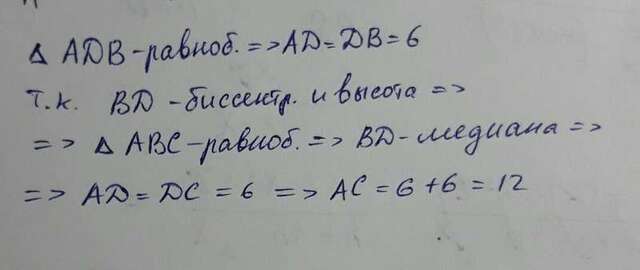 Δ ADB-равноб. => AD=DB=6
т.к. BD-биссектр. и высота =>
=> Δ ABC-равноб. => BD-медиана =>
=> AD = DC = 6 => AC = 6+6 = 12